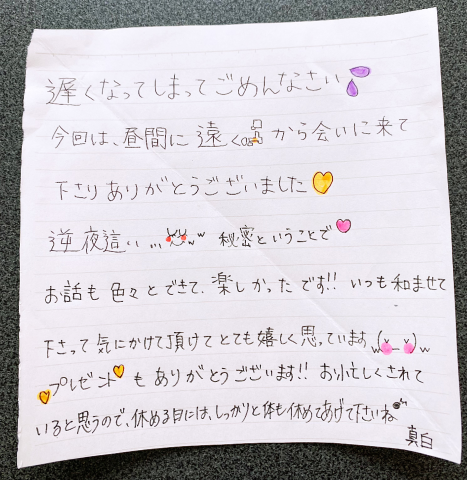 遅くなってしまってごめんなさい
今回は、昼間に遠くから会いに来て
下さりありがとうございました
逆夜這い... 秘密ということで
お話も色々とできて、楽しかったです!! いつも和ませて
下さって気にかけて頂けてとても嬉しく思っています
プレゼントもありがとうございます!! お忙しくされて
いると思うので、休める日には、しっかりと体も休めてあげて下さいね
真白